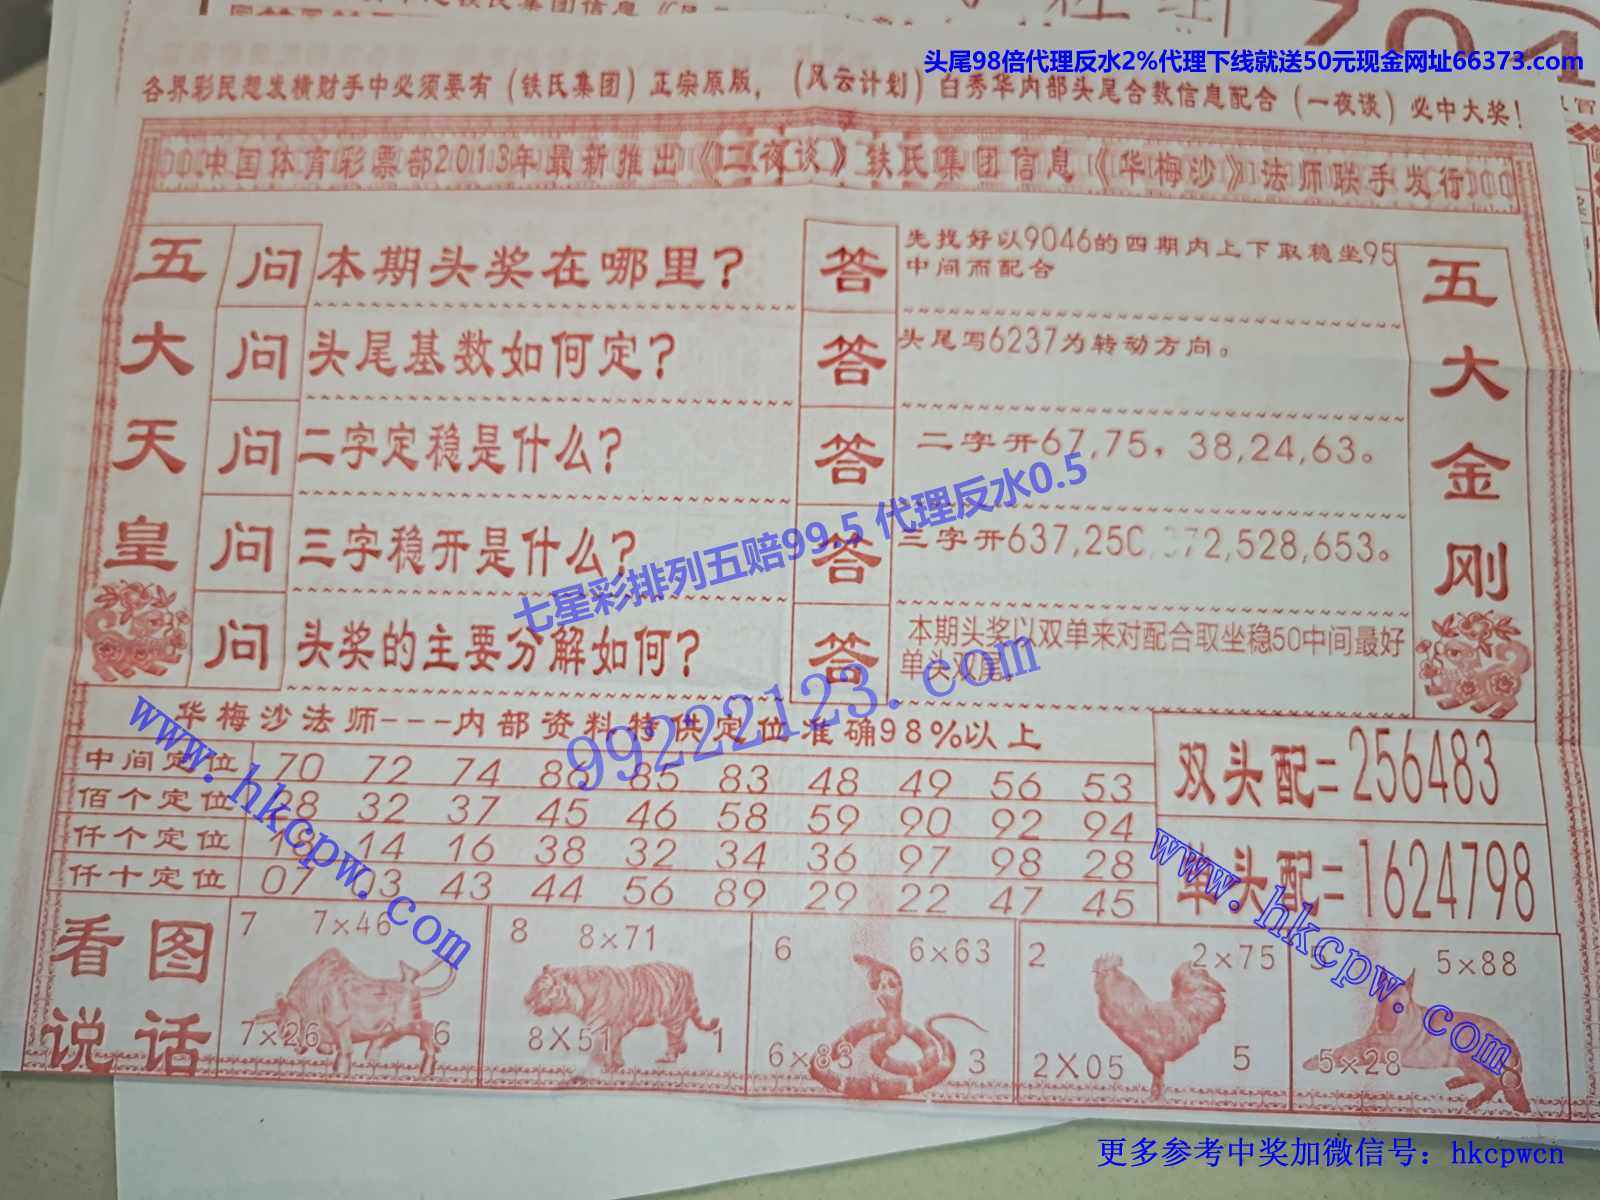 头尾98倍代理反水2%代理下线就送50元现金网址66373.com
各界彩民想发横财手中必须要有（铁氏集团）正宗原版，（风云计划）白秀华内部头尾合数信息配合（一夜谈）必中大奖！
中国体育彩票部2013年最新推出《二夜谈》铁氏集团信息《华梅沙》法师联手发行
五大天皇
问 本期头奖在哪里？
答 先找好以9046的四期内上下取稳坐95
中间而配合
问 头尾基数如何定？
答 头尾写6237为转动方向。
问 二字定稳是什么？
答 二字开67,75，38,24,63。
问 三字稳开是什么？
答 三字开637,250,372,528,653。
问 头奖的主要分解如何？
答 本期头奖以双单来对配合取坐稳50中间最好
单头双尾。
五大金刚
七星彩排列五赔99.5 代理反水0.5
99222123.com
华梅沙法师---内部资料特供定位准确98%以上
中间定位 70 72 74 86 85 83 48 49 56 53
佰个定位 28 32 37 45 46 58 59 90 92 94
仟个定位 14 16 38 32 34 36 97 98 28
仟十定位 07 03 43 44 56 89 29 22 47 45
双头配=256483
单头配=1624798
www.hkcpw.com
www.hkcpw.com
看图
说话
7 7×46
7×26 6
8 8×71
8X51 1
6 6×63
6×83 3
2 2×75
2X05 5
5×88
5×28
更多参考中奖加微信号：hkcpwcn